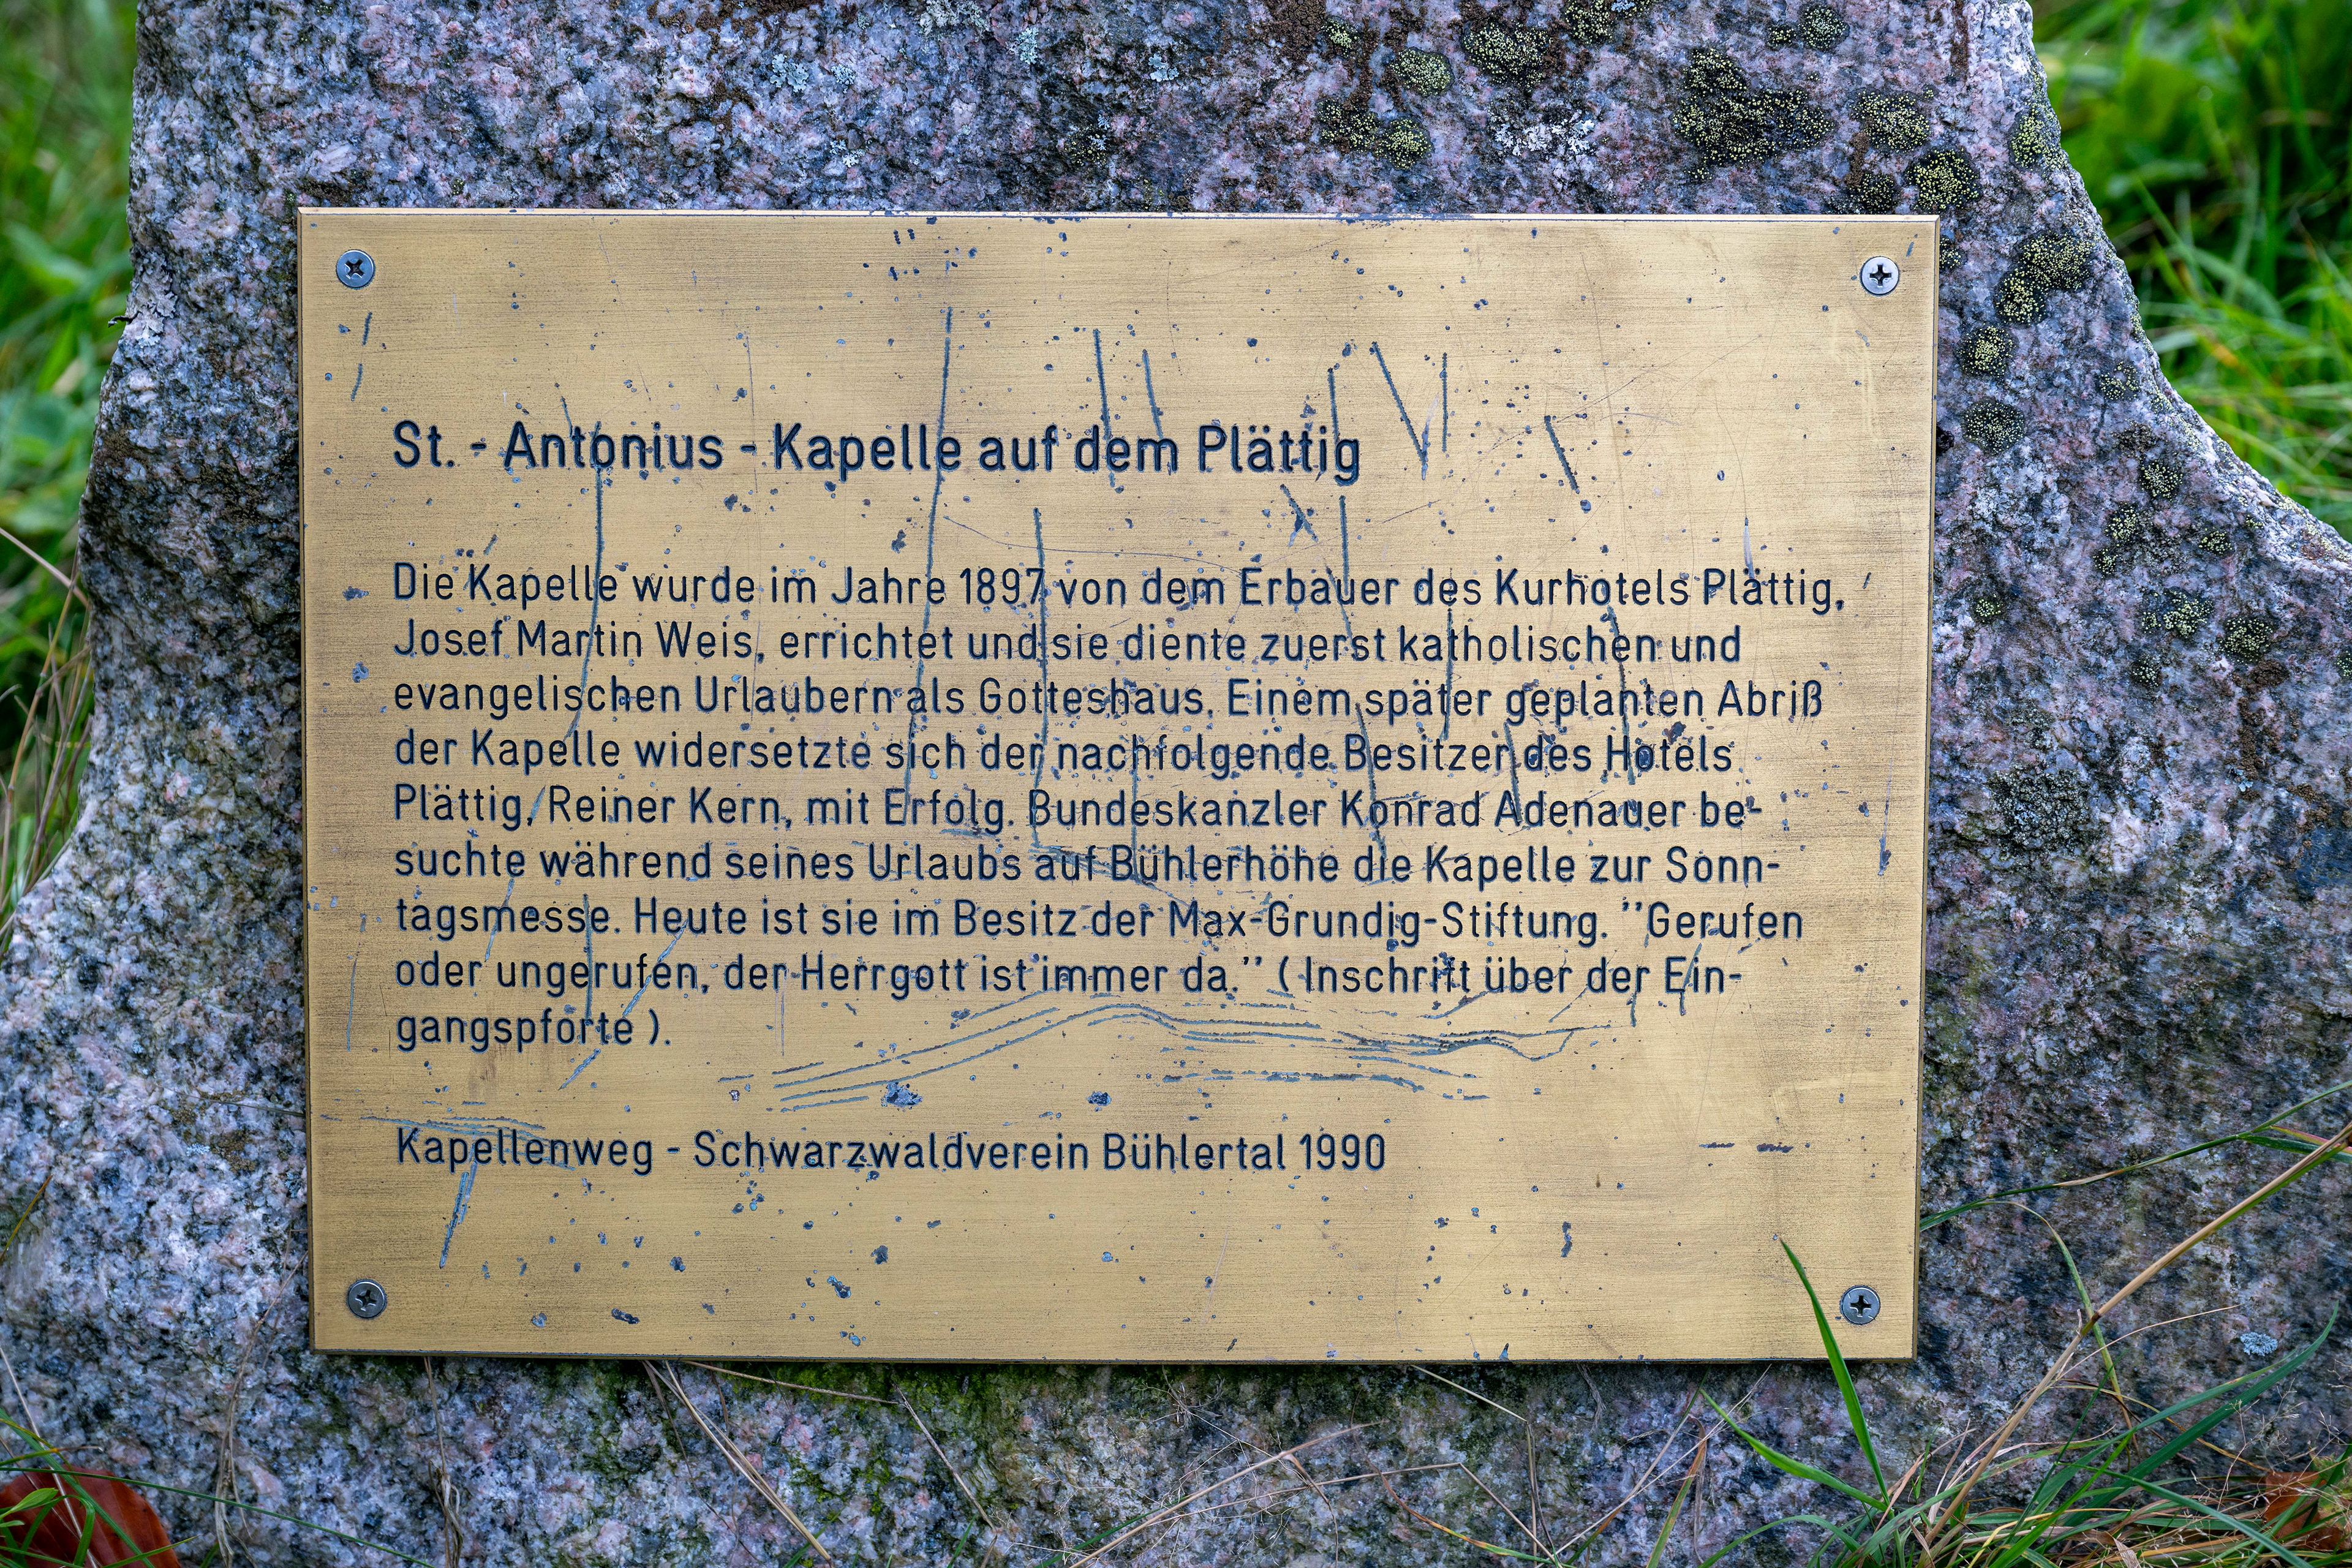 St. - Antonius - Kapelle auf dem Plättig
Die Kapelle wurde im Jahre 1897 von dem Erbauer des Kurhotels Plättig,
Josef Martin Weis, errichtet und sie diente zuerst katholischen und
evangelischen Urlaubern als Gotteshaus. Einem später geplanten Abriß
der Kapelle widersetzte sich der nachfolgende Besitzer des Hotels
Plättig, Reiner Kern, mit Erfolg. Bundeskanzler Konrad Adenauer be-
suchte während seines Urlaubs auf Bühlerhöhe die Kapelle zur Sonn-
tagsmesse. Heute ist sie im Besitz der Max-Grundig-Stiftung. "Gerufen
oder ungerufen, der Herrgott ist immer da." ( Inschrift über der Ein-
gangspforte ).
Kapellenweg - Schwarzwaldverein Bühlertal 1990